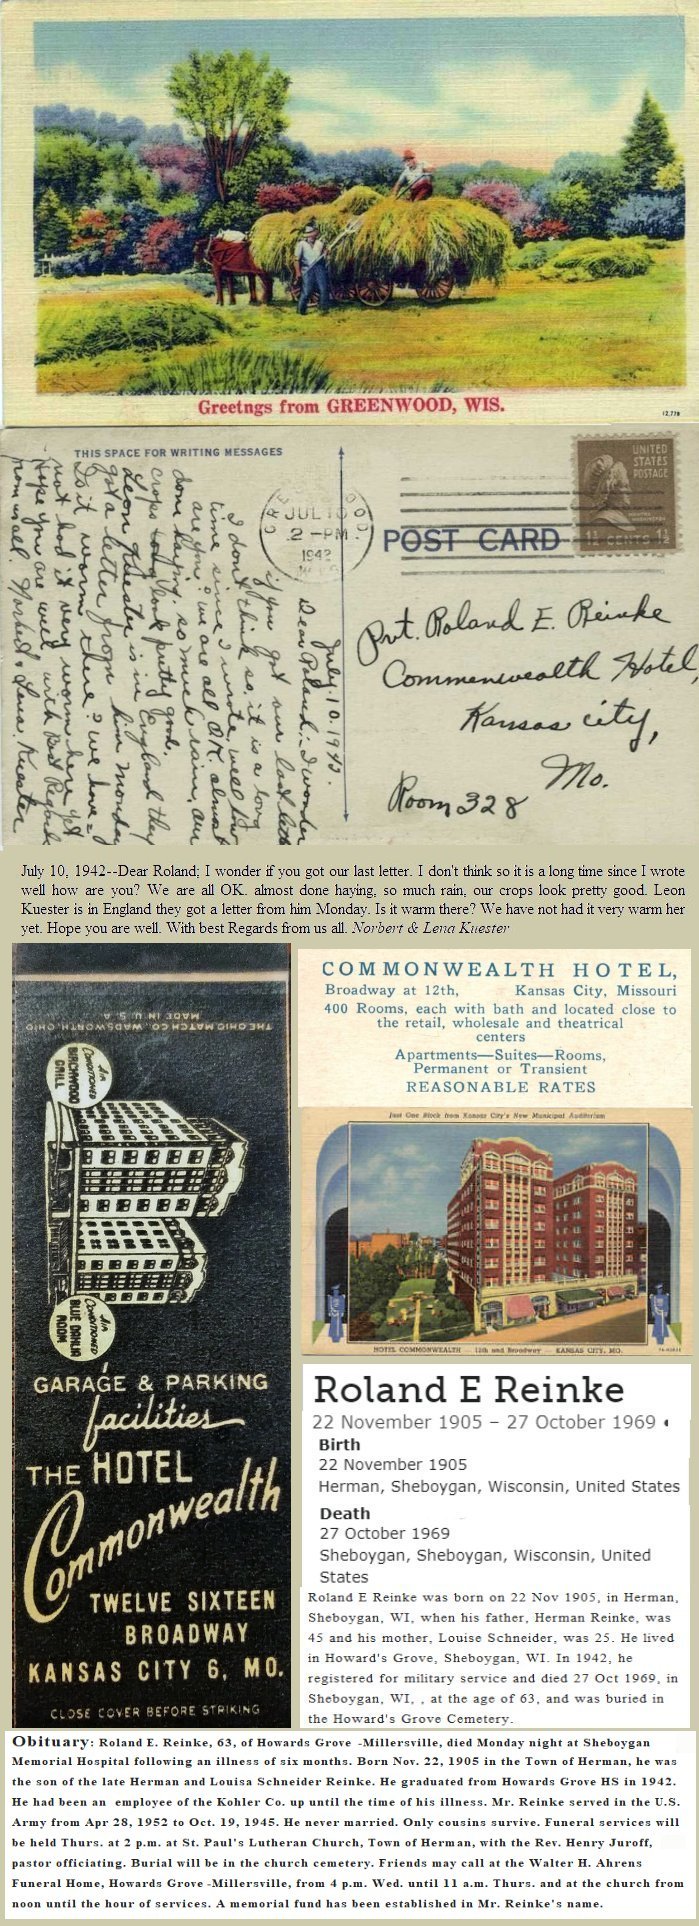 Greetngs from GREENWOOD, WIS.
12,778
THIS SPACE FOR WRITING MESSAGES
JUL 10
2 - PM
1942
WIS.
POST CARD
UNITED
STATES
POSTAGE
1½ CENTS 1½
July. 10. 1942.
Dear Roland:- I wonder
if you got our last letter
I don't think so it is a long
time since I wrote. well how
are you? we are all O.K. almost
done haying. so much rain, our
crops look pretty good.
Leon Kuester is in England they
got a letter from him Monday
Is it warm there? we have
not had it very warm here yet
Hope you are well. with Best Regards
from us all. Norbert & Lena Kuester
Pvt. Roland E. Reinke
Commenwealth Hotel,
Kansas city,
Mo.
Room 328
July 10, 1942--Dear Roland; I wonder if you got our last letter. I don't think so it is a long time since I wrote
well how are you? We are all OK. almost done haying, so much rain, our crops look pretty good. Leon
Kuester is in England they got a letter from him Monday. Is it warm there? We have not had it very warm her
yet. Hope you are well. With best Regards from us all. Norbert & Lena Kuester
THE OHIO MATCH CO. WADSWORTH, OHIO.
MADE IN U. S. A.
AIR
CONDITIONED
BIRCHWOOD
GRILL
AIR
CONDITIONED
BLUE DAHLIA
ROOM
GARAGE & PARKING
facilities
THE HOTEL
Commonwealth
TWELVE SIXTEEN
BROADWAY
KANSAS CITY 6, MO.
CLOSE COVER BEFORE STRIKING
COMMONWEALTH HOTEL,
Broadway at 12th, Kansas City, Missouri
400 Rooms, each with bath and located close to
the retail, wholesale and theatrical
centers
Apartments—Suites—Rooms,
Permanent or Transient
REASONABLE RATES
Just One Block from Kansas City's New Municipal Auditorium
HOTEL COMMONWEALTH — 12th and Broadway — KANSAS CITY, MO.
Roland E Reinke
22 November 1905 – 27 October 1969 •
Birth
22 November 1905
Herman, Sheboygan, Wisconsin, United States
Death
27 October 1969
Sheboygan, Sheboygan, Wisconsin, United
States
Roland E Reinke was born on 22 Nov 1905, in Herman,
Sheboygan, WI, when his father, Herman Reinke, was
45 and his mother, Louise Schneider, was 25. He lived
in Howard's Grove, Sheboygan, WI. In 1942, he
registered for military service and died 27 Oct 1969, in
Sheboygan, WI, , at the age of 63, and was buried in
the Howard's Grove Cemetery.
Obituary: Roland E. Reinke, 63, of Howards Grove -Millersville, died Monday night at Sheboygan
Memorial Hospital following an illness of six months. Born Nov. 22, 1905 in the Town of Herman, he was
the son of the late Herman and Louisa Schneider Reinke. He graduated from Howards Grove HS in 1942.
He had been an employee of the Kohler Co. up until the time of his illness. Mr. Reinke served in the U.S.
Army from Apr 28, 1952 to Oct. 19, 1945. He never married. Only cousins survive. Funeral services will
be held Thurs. at 2 p.m. at St. Paul's Lutheran Church, Town of Herman, with the Rev. Henry Juroff,
pastor officiating. Burial will be in the church cemetery. Friends may call at the Walter H. Ahrens
Funeral Home, Howards Grove -Millersville, from 4 p.m. Wed. until 11 a.m. Thurs. and at the church from
noon until the hour of services. A memorial fund has been established in Mr. Reinke's name.